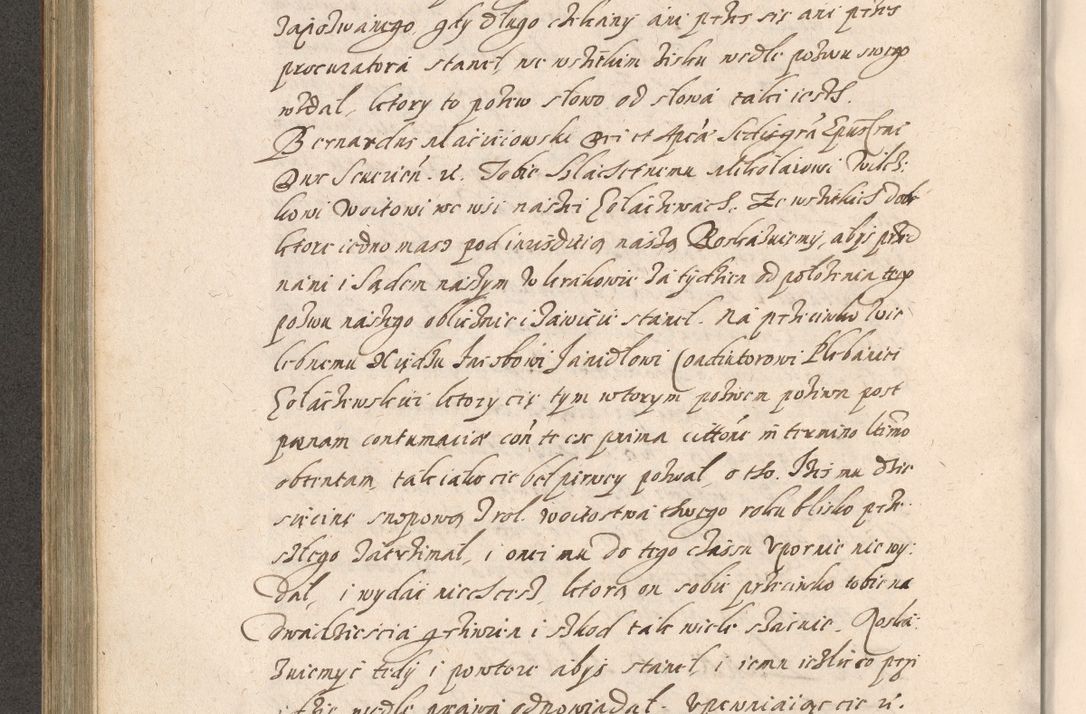 Zapozwanego, gdy długo czekany ani przez się ani przez
procuratora stanel, we wszitkim zisku wedle pozwu swego
wzdal, ktory to pozew słowo od słowá taki iest.
Bernardus Maciiowski Dei et Apcæ Sedis gra Epus Crac
Dux Severien. &c. Tobie Szlachetnemu Mikołaiowi Wilcz
kowi Woitowi we wsi naszei Golaczewach. Ze wszitkich dobr
ktore iedno masz pod inrisdicią naszą Roskazuiemy, abys przed
nami i Sądem naszym w Krakowie za tydzien od połozenia tego
pozwu naszego oblicznie i zawicie stanel. Na przeciwko Wie
lebnemu Xiędzu Jacobowi Janidłowi Coadiutorowi Plebaniei
Golaczewskiei ktory cię tym wtorym pozwem pozwa post
pœnam contumaciæ con te ex prima cittone in termino ultimo
obtentam, tak iako cie bel pierwey pozwal, o tho. Izes mu dzie
sięcinę snopową z rol. woitostwa thwego roku blisko prze
szlego zatrzimał, i onei mu do tego czassu Vpornie nie wy
dał, i wydai niechcesz, ktorą on sobie przeciwko tobie na
dwadziescia grziwien i szkod tak wiele szacuie. Roska
zuiemyć tedy i powtore abys stanel, i iemu iesliće co przi
wedle prawa odpowiadał. Vpewniaiąc cię &c.